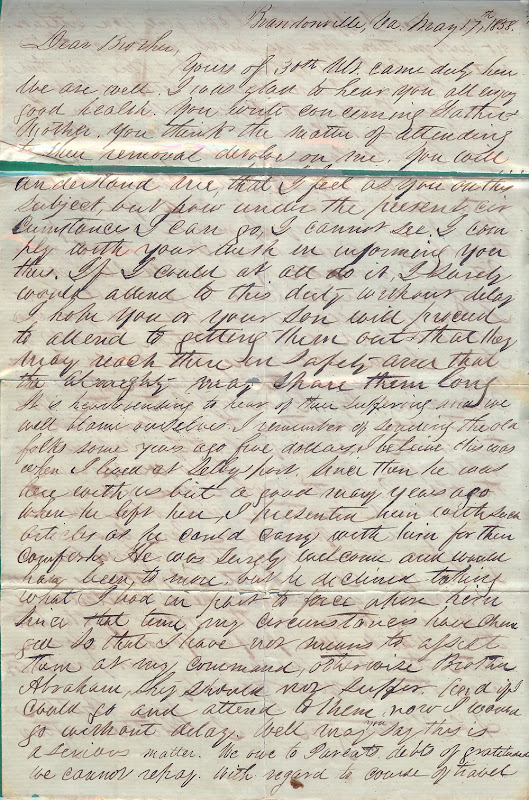 Brandonville, Va. May 17th, 1858.
Dear Brother,
Yours of 30th Ult. came duly here
We are well. I was glad to hear you all enjoy
good health. You write concerning Father &
Mother, you think the matter of attending
to their removal devolves on me. You will
understand me that I feel as you on this
subject, but how under the present cir
cumstance I can go, I cannot see. I com
ply with your wish in informing you
thus. If I could at all do it, I surely
would attend to this duty without delay
I hope you or your son will proceed
to attend to getting them out & that they
may reach there in safety and that
the Almighty may spare them long
It is heartrending to hear of their suffering and we
well blame ourselves. I remember of sending the old
folks some years ago five dollars, I believe this was
when I lived at Selbysport. Since then he was
here with us but a good many years ago
when he left here, I presented him with such
articles as he could carry with him for their
comfort. He was surely welcome and would
have been to more. but he declined taking
what I had in part to upon him
Since that time my circumstances have chan
ged so that I have not means to assist
them at my command, otherwise Brother
Abraham, they should not suffer. And if I
could go and attend to them, now I would
go without delay. Well may you say this is
a serious matter. We owe to Parents, debts of gratitude
we cannot repay. With regard to course of travel